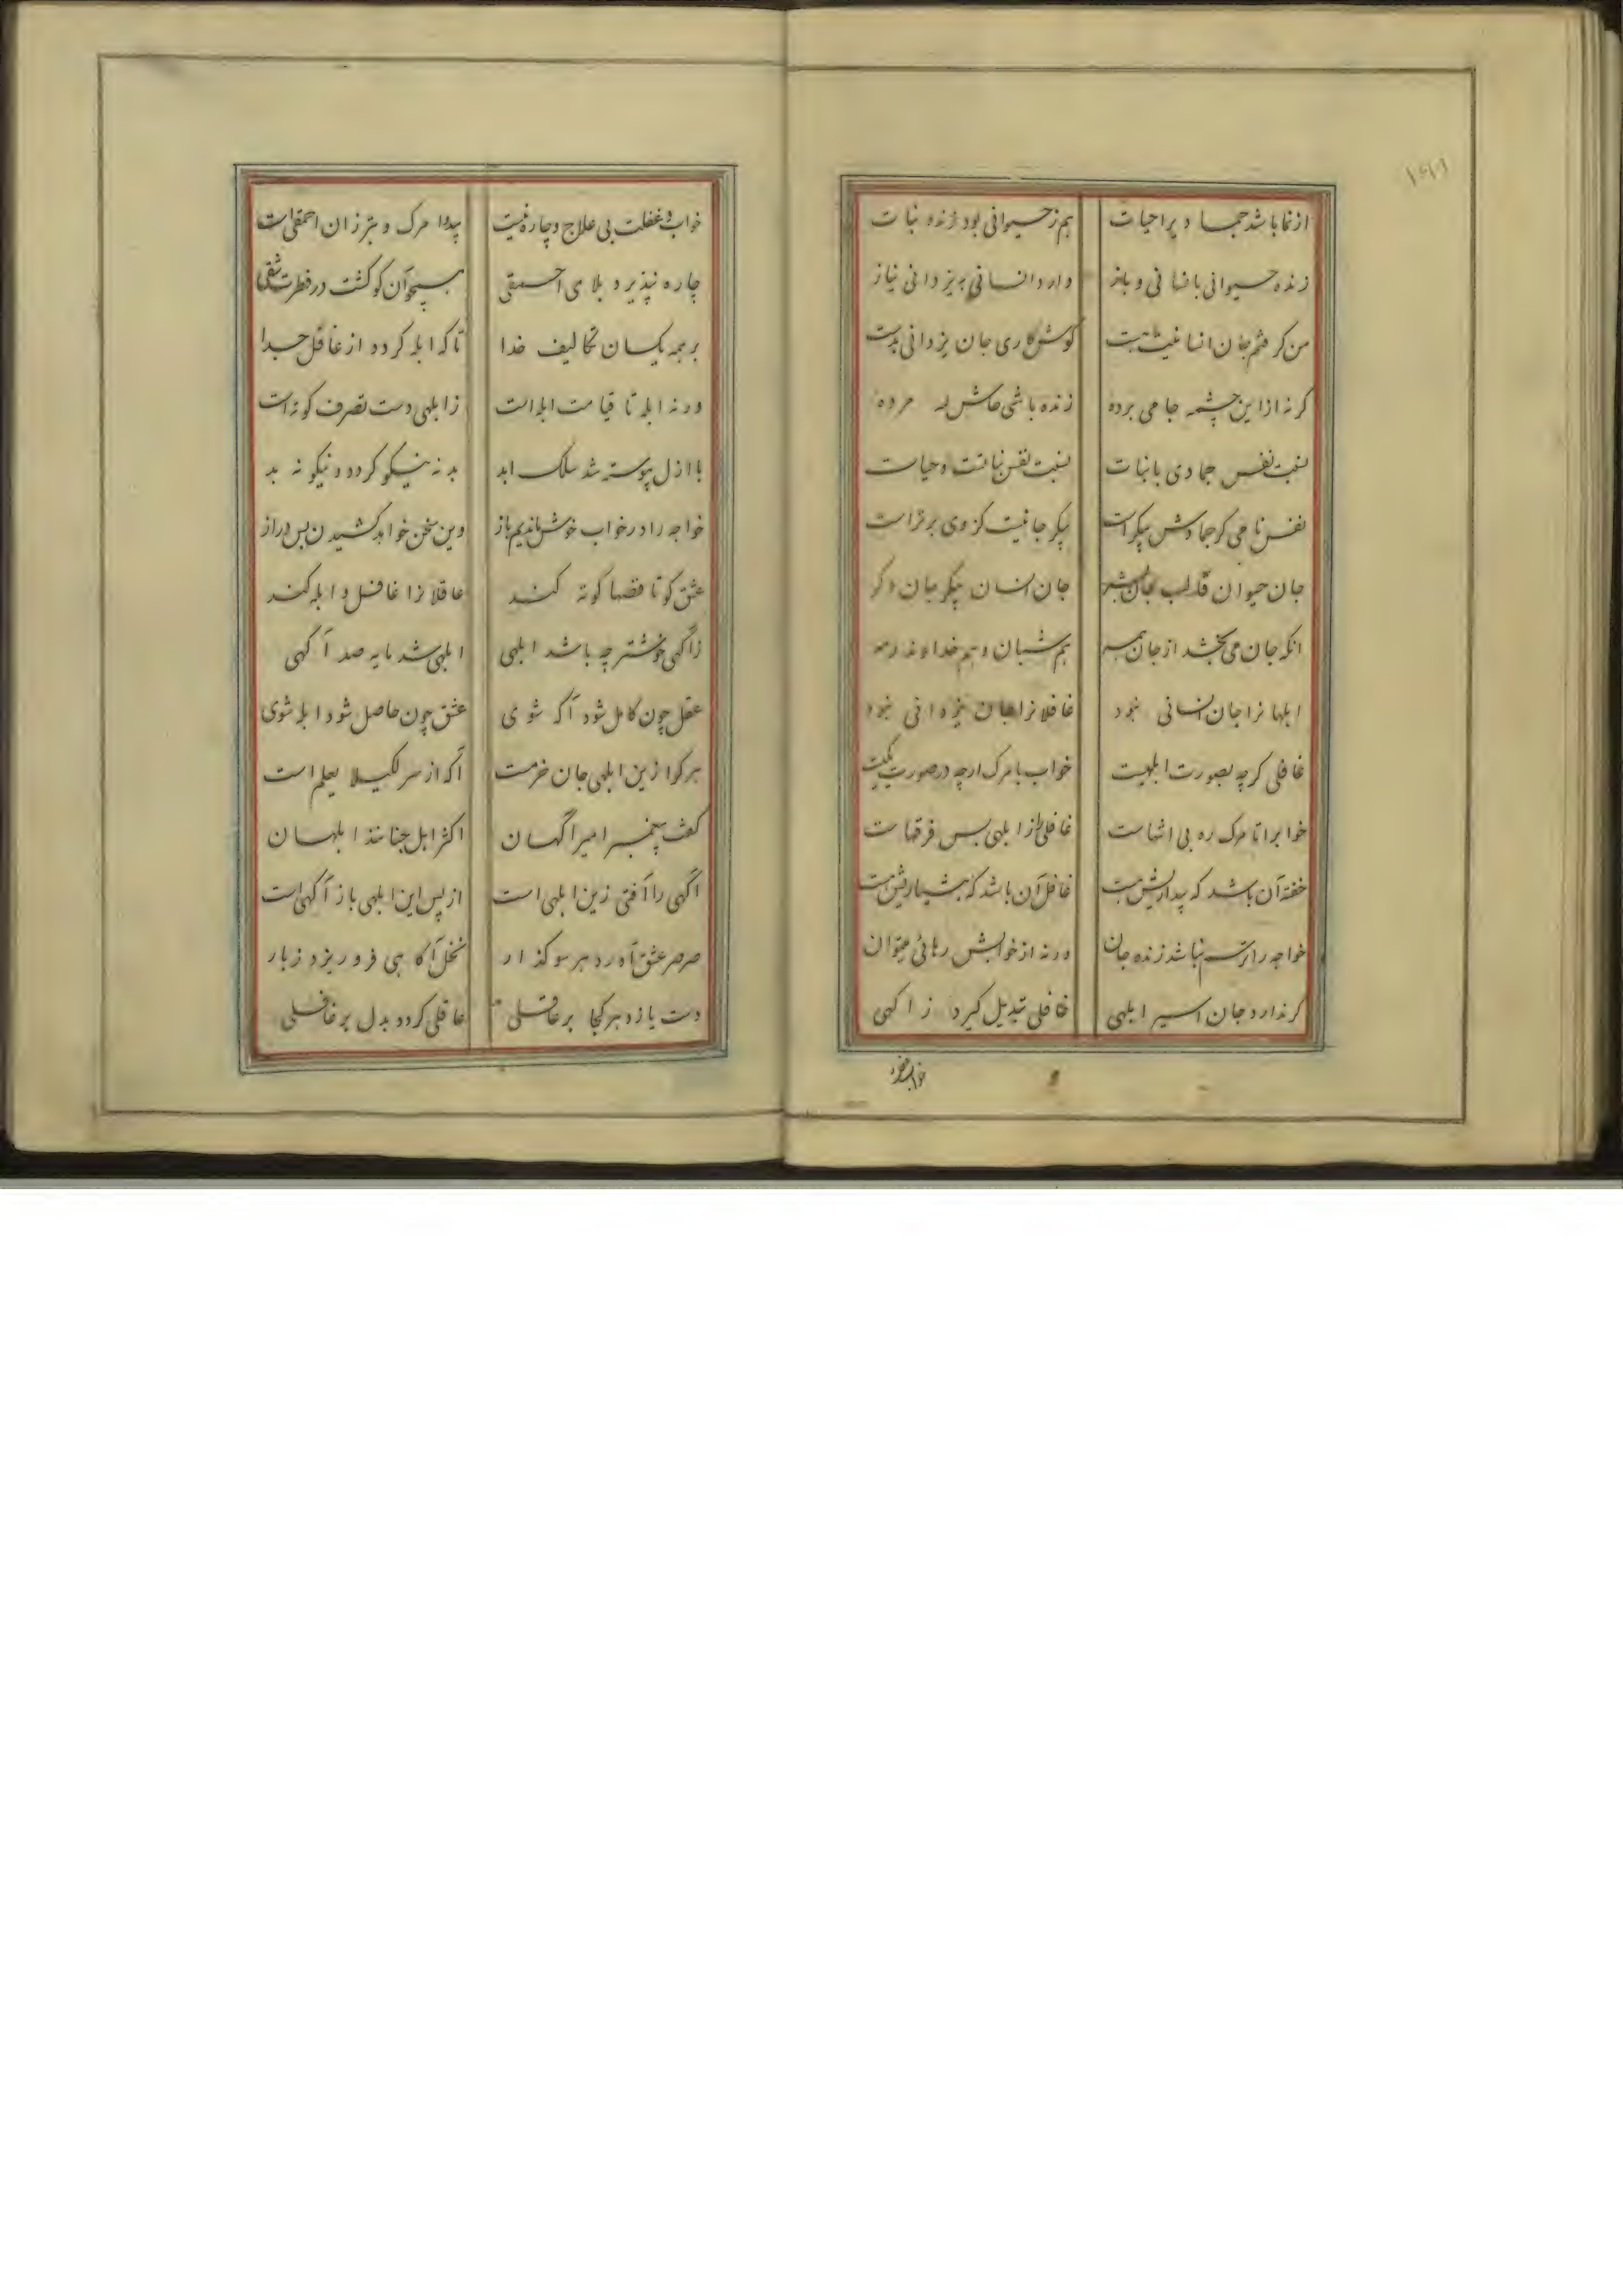 ۱۴۹
از نما باشد جماد یرا حیات هم ز حیوانی بود زنده نبات
زنده حیوانی بانسانی و باز دارد انسانی بیزدانی نیاز
من کرفتم جان انسانیت هست کوش کاری جان یزدانی بدست
کر نه از این چشمه جامی برده زنده باشی حاش لله مرده
نسبت نفس جمادی با نبات نسبت نفس نباتست و حیات
نفس نامی کر جمادش پیکر است پیکر جانیست کز وی برتر است
جان حیوان قالب جان بشر جان انسان پیکر جان دکر
انکه جان می بخشد از جان همه هم شبان و هم خداوند رمه
ابلهانرا جان انسانی نبود غافلانرا جان یزدانی نبود
غافلی کرچه بصورت ابلهیست خواب با مرک ارچه در صورت یکیست
خوابرا تا مرک ره بی انتهاست غافلی را از ابلهی بس فرقهاست
خفته آن باشد که بیداریش هست غافل آن باشد که هشیاریش هست
خواجه را ترسم نباشد زنده جان ورنه از خوابش رهائی میتوان
کر ندارد جان اسیر ابلهی غافلی تبدیل کیرد ز اکهی
خواب و غفلت بی علاج و چاره نیست بیدوا مرک و بتر زان احمقی است
چاره نپذیرد بلای احمقی همچو آن کو کشت در فطرت شقی
بر همه یکسان تکالیف خدا تا که ابله کردد از عاقل جدا
ورنه ابله تا قیامت ابله است ز ابلهی دست تصرف کوته است
با ازل پیوسته شد سلک ابد بد نه نیکو کردد و نیکو نه بد
خواجه را در خواب خوش ماندیم باز وین سخن خواهد کشیدن بس دراز
عشق کو تا قصها کوته کند عاقلانرا غافل و ابله کند
ز آکهی خوشتر چه باشد ابلهی ابلهی شد مایه صد آکهی
عقل چون کامل شود آکه شوی عشق چون حاصل شود ابله شوی
هر کرا زین ابلهی جان خرمست آکه از سر لکیلا یعلم است
کفت پیغمبر امیر آکهان اکثر اهل جنانند ابلهان
آکهی را آفتی زین ابلهی است از پس این ابلهی باز آکهی است
صرصر عشق آورد هر سو کذار نخل آکاهی فرو ریزد ز بار
دست یازد هر کجا بر عاقلی عاقلی کردد بدل بر غافلی